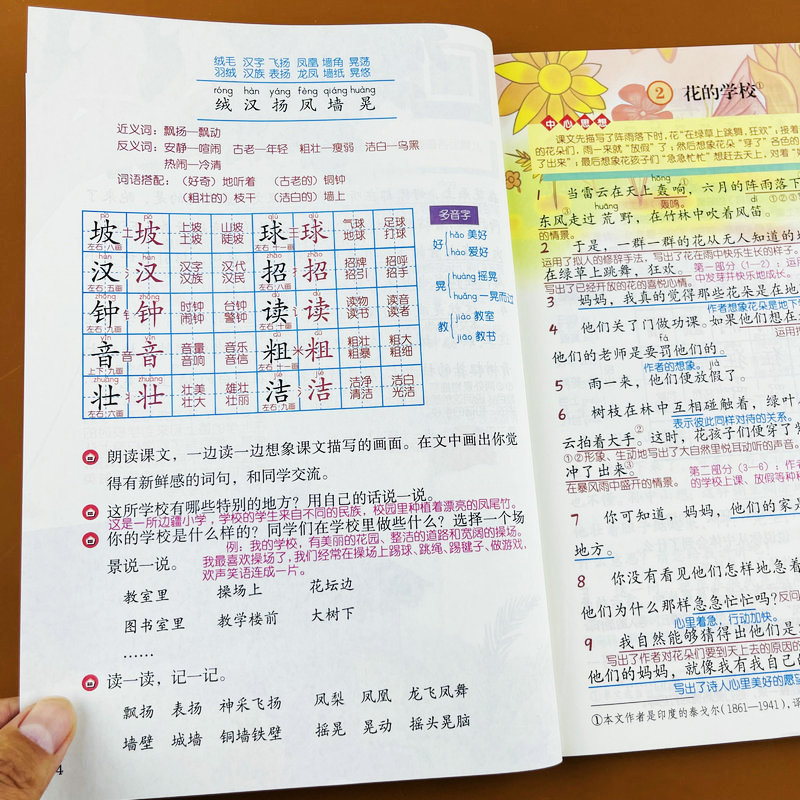 绒毛 汉字 飞扬 凤凰 墙角 晃荡
羽绒 汉族 表扬 龙凤 墙纸 晃悠
róng hàn yáng fèng qiáng huàng
绒 汉 扬 凤 墙 晃
近义词：飘扬—飘动
反义词：安静—喧闹 古老—年轻 粗壮—瘦弱 洁白—乌黑
热闹—冷清
词语搭配：（好奇）地听着 （古老的）铜钟
（粗壮的）枝干 （洁白的）墙上
多音字
好 hǎo 美好
hào 爱好
晃 huàng 摇晃
huǎng 一晃而过
教 jiào 教室
jiāo 教书
pō pō qiú qiú
坡 坡 上坡 山坡 球 球 气球 足球
左右:八画 土坡 陡坡 左右:十一画 地球 打球
汉 汉 汉字 汉代 招 招 招牌 招呼
左右:五画 汉族 汉民 左右:八画 招引 招手
钟 钟 时钟 台钟 读 读 读物 读音
左右:九画 闹钟 警钟 左右:十画 读书 读者
音 音 音量 音乐 粗 粗 粗壮 粗大
上下:九画 音响 音信 左右:十一画 粗暴 粗细
壮 壮 壮美 雄壮 洁 洁 洁净 洁白
左右:六画 壮大 壮丽 左右:九画 清洁 光洁
朗读课文，一边读一边想象课文描写的画面。在文中画出你觉
得有新鲜感的词句，和同学交流。
这所学校有哪些特别的地方？用自己的话说一说。
这是一所边疆小学，学校的学生来自不同的民族，校园里种植着漂亮的凤尾竹。
你的学校是什么样的？同学们在学校里做些什么？选择一个场
例：我的学校，有美丽的花园、整洁的道路和宽阔的操场。
景说一说。
我最喜欢操场了，我们经常在操场上踢球、跳绳、踢毽子、做游戏，
欢声笑语连成一片。
教室里 操场上 花坛边
图书室里 教学楼前 大树下
……
读一读，记一记。
飘扬 表扬 神采飞扬 凤梨 凤凰 龙飞凤舞
墙壁 城墙 铜墙铁壁 摇晃 晃动 摇头晃脑
4
2 花的学校①
中心思想
课文先描写了阵雨落下时，花“在绿草上跳舞，狂欢”；接着
的花朵们，雨一来就“放假”了；然后想象花朵“穿了”各色的
了出来”；最后想象花孩子们“急急忙忙”想赶去天上，对着“妈
1 当雷云在天上轰响，六月的阵雨落下
hōng
轰鸣。
东风走过荒野，在竹林中吹着风笛。
huāng dí
的情景。
2 于是，一群一群的花从无人知道的地
运用了拟人的修辞手法，写出了花在雨中快乐生长的样子。
在绿草上跳舞，狂欢。 第一部分（1—2）：
写出了已经开放的花的喜悦心情。 中发芽并快乐地成长。
3 妈妈，我真的觉得那些花朵是在地
作者想象花朵是地下的
4 他们关了门做功课。如果他们想在
fá
他们的老师是要罚他们的。
作者的想象。
jià
5 雨一来，他们便放假了。
6 树枝在林中互相碰触着，绿叶
表示彼此同样对待的关系。
云拍着大手。这时，花孩子们便穿了
①②形象、生动地写出了大自然里悦耳动听的声音。
冲了出来。 第二部分（3—6）：
在暴风雨中盛开的情景。 的学校上课、放假等种种
7 你可知道，妈妈，他们的家
地方。
8 你没有看见他们怎样地急着
他们为什么那样急急忙忙吗？反问
心里着急，行动加快。
9 我自然能够猜得出他们是
写出了作者对花朵们要到天上去的原因的
他们的妈妈，就像我有我自己
写出了诗人心里美好的愿望
①本文作者是印度的泰戈尔（1861—1941），译